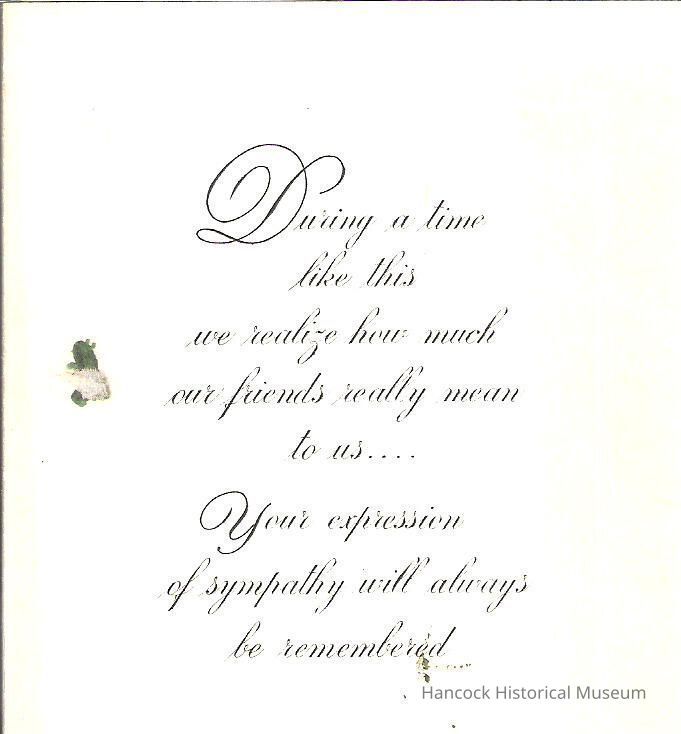 During a time
like this
we realize how much
our friends really mean
to us....
Your expression
of sympathy will always
be remembered
Hancock Historical Museum